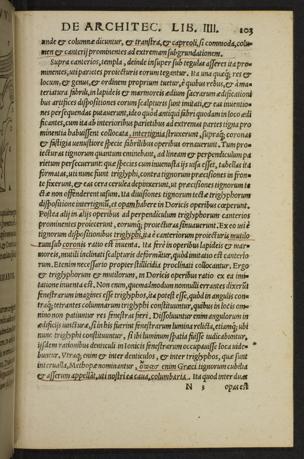 DE ARCHITEC. LIB. IIII. 103
unde & columnæ dicuntur, & transtra, & capreoli, si commoda, colu-
men & canterij prominentes ad extremam subgrundationem.
Supra canterios, templa, deinde insuper sub tegulas asseres ita pro-
minentes, uti parietes proiecturis eorum tegantur. Ita una quæq; res &
locum, & genus, & ordinem proprium tuetur, è quibus rebus, & à ma-
teriatura fabrili, in lapideis & marmoreis ædium sacrarum ædificationi-
bus artifices dispositiones eorum scalpturis sunt imitati, & eas inuentio-
nes persequendas putauerunt, ideo quod antiqui fabri quodam in loco ædi
ficantes, cum ita ab interioribus parietibus ad extremas partes tigna pro
minentia habuissent collocata, intertignia struxerunt, supraq; coronas
& fastigia uenustiore specie fabrilibus operibus ornauerunt. Tum proie-
cturas tignorum quantum eminebant, ad lineam & perpendiculum pa
rietum persecuerunt: quæ species cum inuenusta ijs uisa esset, tabellas ita
formatas, uti nunc fiunt triglyphi, contra tignorum præcisiones in fron-
te fixerunt, & eas cera cœrulea depinxerunt, ut præcisiones tignorum te
ctæ non offenderent uisum. Ita diuisiones tignorum tectæ triglyphorum
dispositione intertignium, et opam habere in Doricis operibus cœperunt.
Postea alij in alijs operibus ad perpendiculum triglyphorum canterios
prominentes proiecerunt, eorumq; proiecturas sinuauerunt. Ex eo uti è
tignorum dispositionibus triglyphi, ita è canteriorum proiecturis mutulo
rum sub coronis ratio est inuenta. Ita ferè in operibus lapideis & mar-
moreis, mutili inclinati scalpturis deformantur, quod imitatio est canterio
rum. Etenim necessario propter stillicidia proclinati collocantur. Ergo
& triglyphorum & mutilorum, in Doricis operibus ratio ex ea imi-
tatione inuenta est. Non enim, quemadmodum nonnulli errantes dixerunt
fenestrarum imagines esse triglyphos, ita potest esse, quod in angulis con-
traq; tetrantes columnarum triglyphi constituuntur, quibus in locis omni-
nino non patiuntur res fenestras fieri. Dissoluuntur enim angulorum in
ædificijs iuncturæ, si in his fuerint fenestrarum lumina relicta, etiamq; ubi
nunc triglyphi constituuntur, si ibi luminum spatia fuisse iudicabuntur,
ijsdem rationibus denticuli in Ionicis fenestrarum occupauisse loca uide-
buntur. Utraq; enim & inter denticulos, & inter triglyphos, quæ sunt
interualla, Methopæ nominantur, enim Græci tignorum cubilia
& asserum appellant, uti nostri ea caua, columbaria. Ita quod inter duas
N 3 opas est